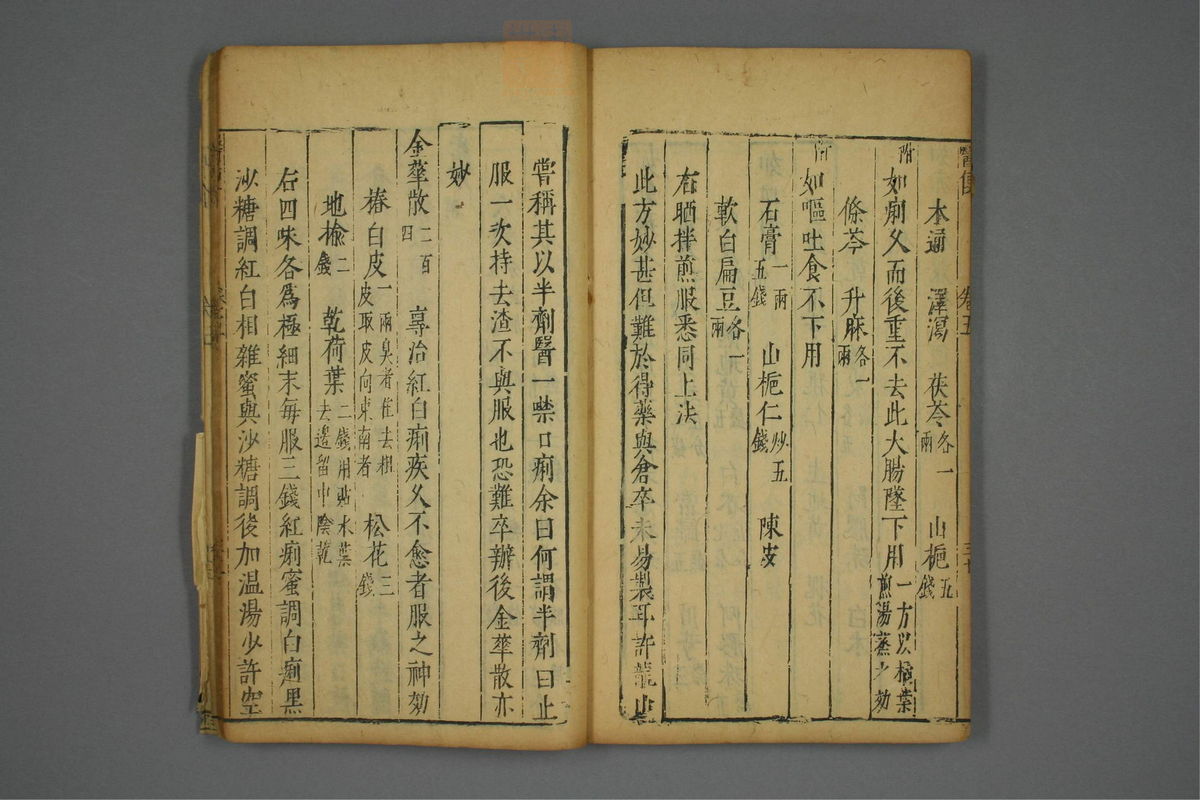 醫便 卷五 三十
木通 澤瀉 茯苓各一兩 山梔五錢
附 如痢久而後重不去此大腸墜下用一方以橘葉煎湯熏之効
條芩 升麻各一兩
附 如嘔吐食不下用
石膏一兩五錢 山梔仁炒五錢 陳皮
軟白扁豆各一兩
右晒拌煎服悉同上法
此方妙甚但難於得藥與倉卒未易製耳許龍山
嘗稱其以半劑醫一噤口痢余曰何謂半劑曰止
服一次持去渣不與服也恐難卒辦後金華散亦
妙
金華散二百四 專治紅白痢疾久不愈者服之神効
椿白皮一兩臭者佳去粗皮取皮向東南者 松花三錢
地榆二錢 乾荷葉二錢用貼水葉去邊留中陰乾
右四味各爲極細末每服三錢紅痢蜜調白痢黑
沙糖調紅白相雜蜜與沙糖調後加温湯少許空